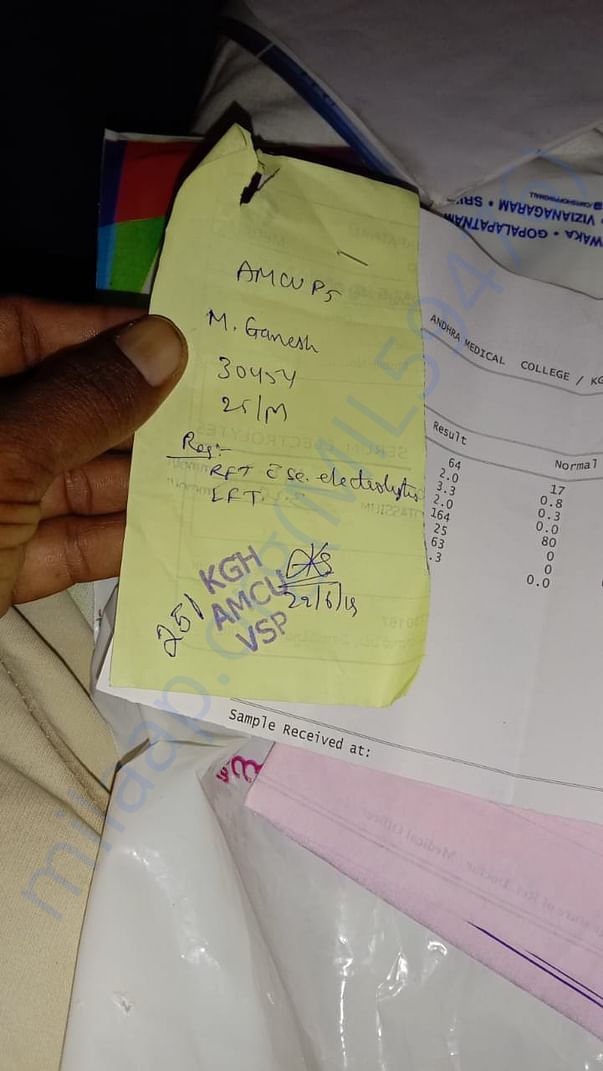 AMCU P5
M. Ganesh
30454
25/M
Req:-
RFT c̄ se. electrolytes
LFT.
251
KGH
AMCU
VSP
22/6/19
ANDHRA MEDICAL COLLEGE / KG
Result Normal
64 17
2.0 0.8
3.3 0.3
2.0 0.0
164 80
25 0
63 0
.3 0.0
Sample Received at:
WAKA • GOPALAPATNAM
• VIZIANAGARAM • SRI
SERUM ELECTROLYTES
milaap.org(MIL5947